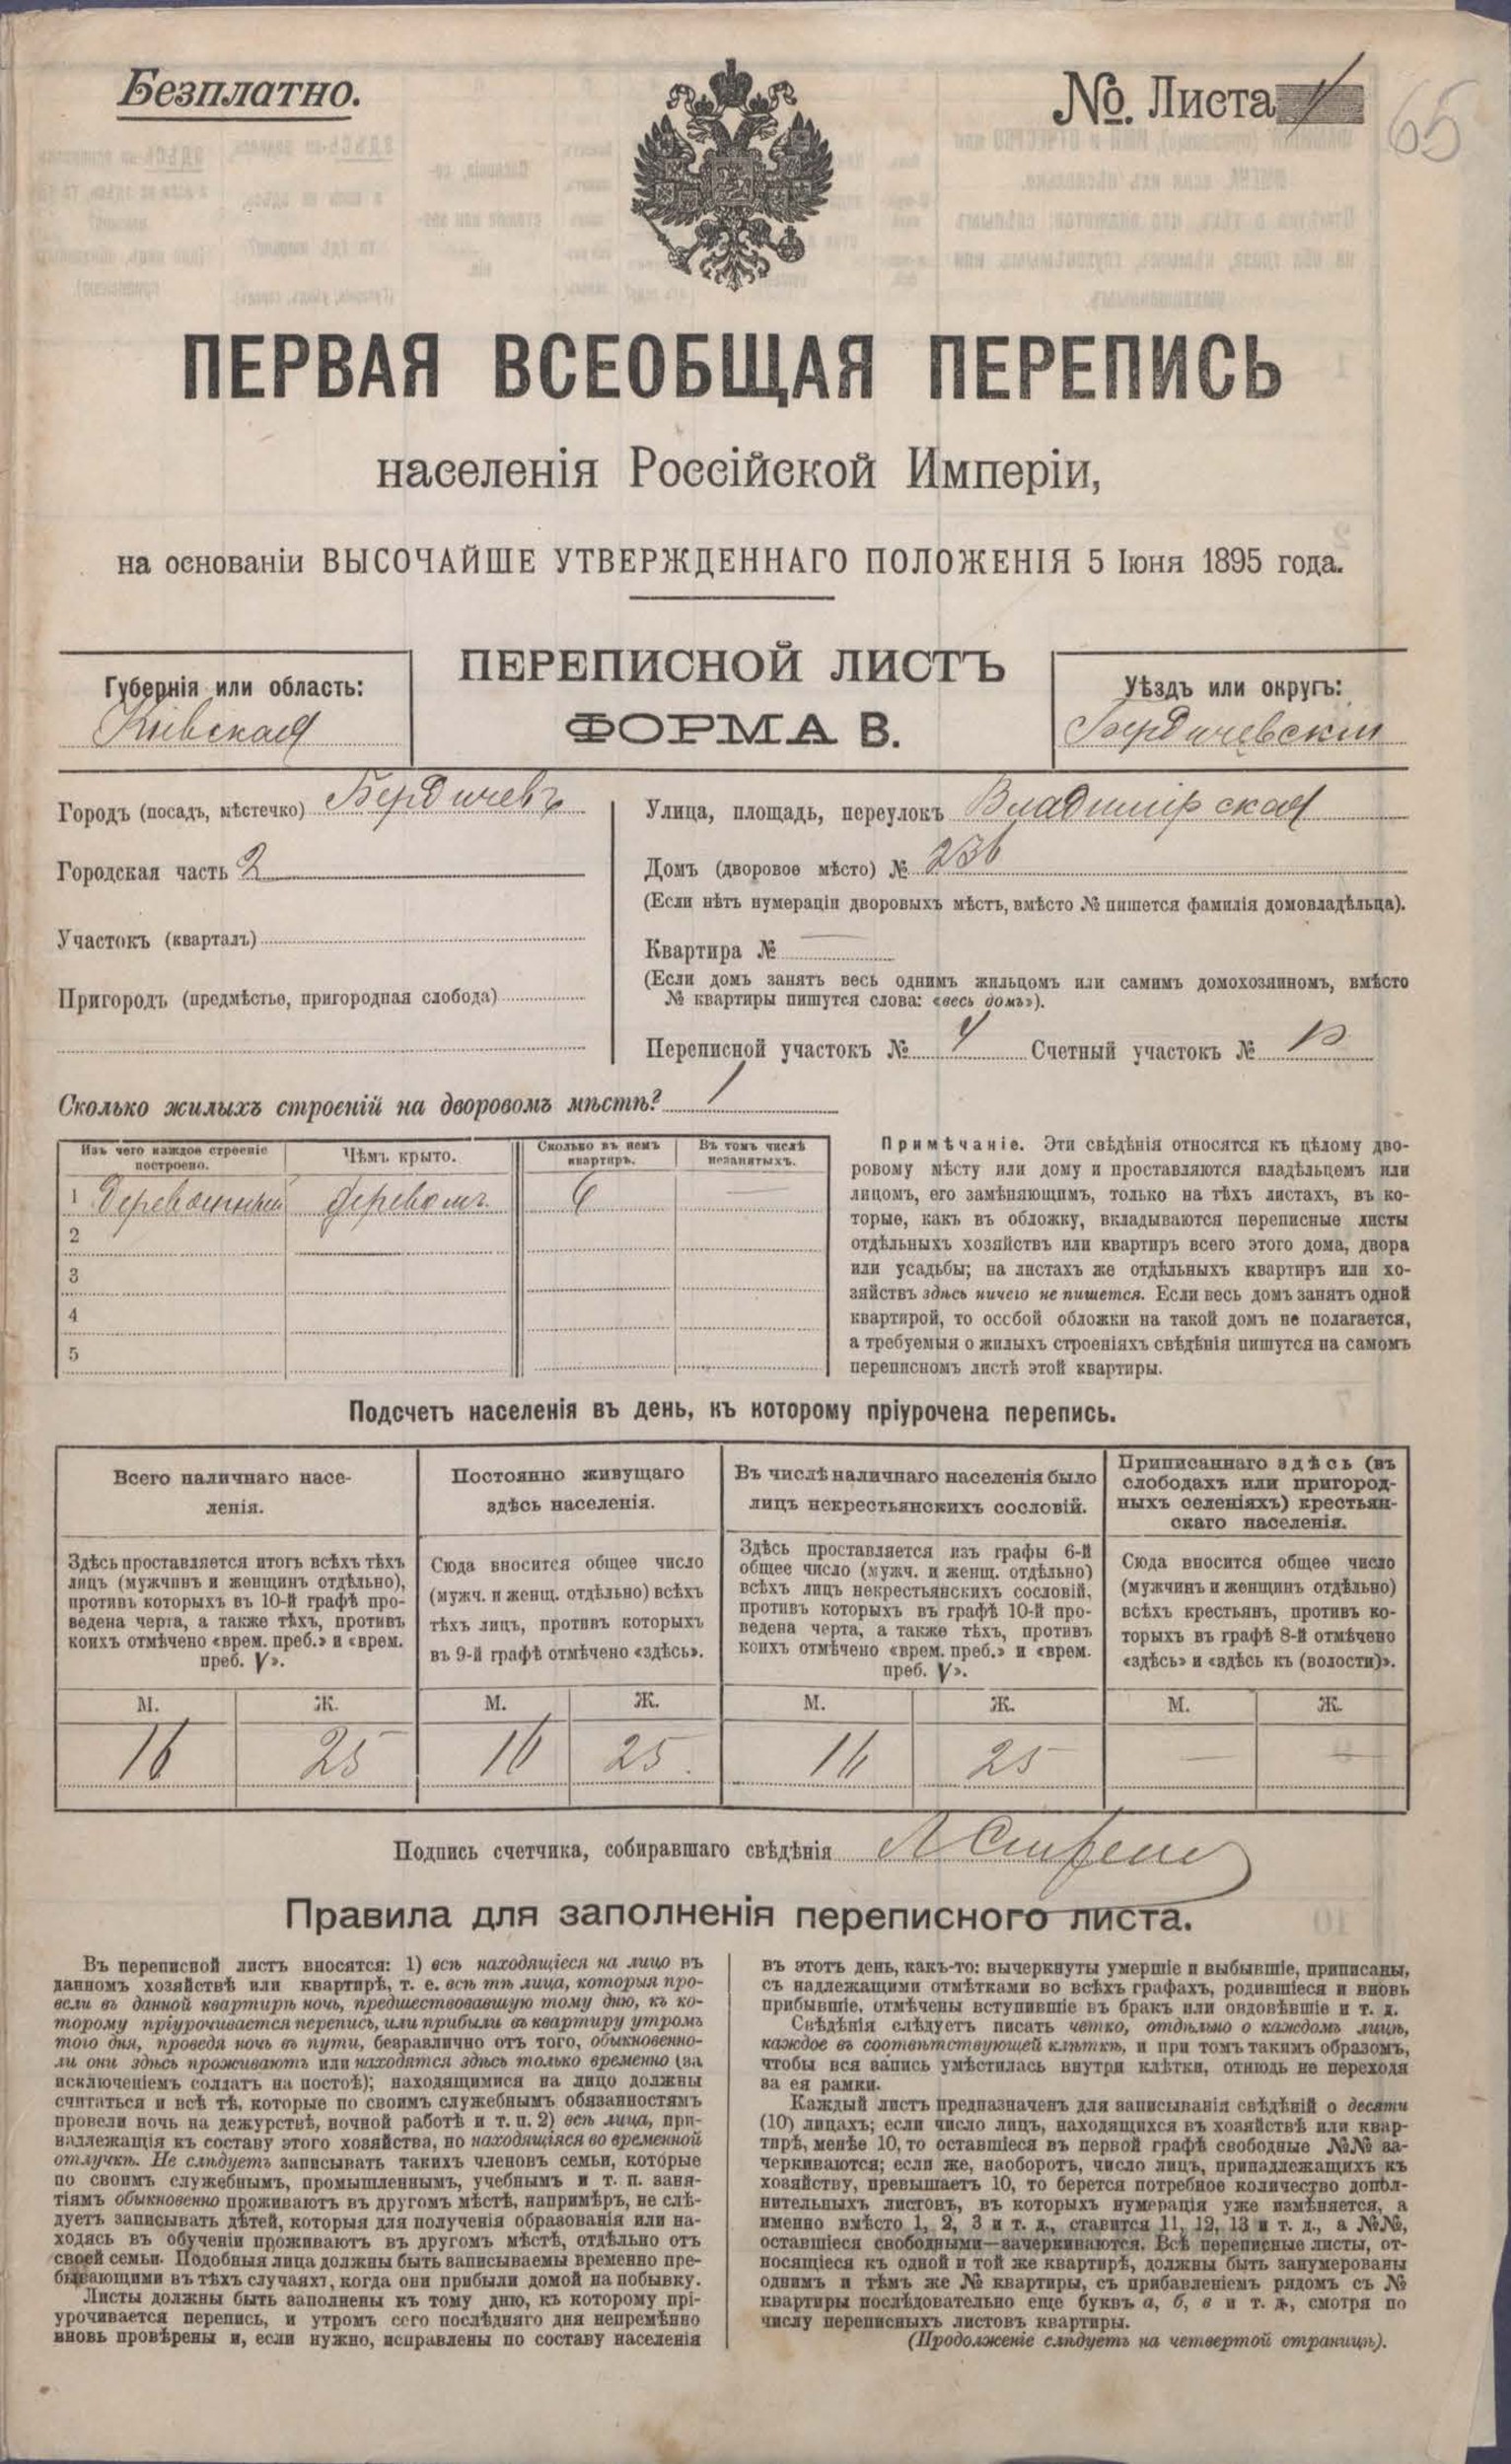 Безплатно.
№. Листа
65
ПЕРВАЯ ВСЕОБЩАЯ ПЕРЕПИСЬ
населенія Россійской Имперіи,
на основаніи ВЫСОЧАЙШЕ УТВЕРЖДЕННАГО ПОЛОЖЕНІЯ 5 Іюня 1895 года.
ПЕРЕПИСНОЙ ЛИСТЪ
ФОРМА В.
Губернія или область:
Кіевская
Уѣздъ или округъ:
Бердичевскій
Городъ (посадъ, мѣстечко) Бердичевъ
Городская часть 2
Участокъ (кварталъ)
Пригородъ (предмѣстье, пригородная слобода)
Улица, площадь, переулокъ Владимірская
Домъ (дворовое мѣсто) № 236
(Если нѣтъ нумераціи дворовыхъ мѣстъ, вмѣсто № пишется фамилія домовладѣльца).
Квартира № —
(Если домъ занятъ весь однимъ жильцомъ или самимъ домохозяиномъ, вмѣсто
№ квартиры пишутся слова: «весь домъ»).
Переписной участокъ № 4 Счетный участокъ №
Сколько жилыхъ строеній на дворовомъ мѣстѣ? 1
Изъ чего каждое строеніе
построено.
Чѣмъ крыто.
Сколько въ немъ
квартиръ.
Въ томъ числѣ
незанятыхъ.
1 Деревянный деревомъ 6 —
2
3
4
5
Примѣчаніе. Эти свѣдѣнія относятся къ цѣлому дво-
ровому мѣсту или дому и проставляются владѣльцемъ или
лицомъ, его замѣняющимъ, только на тѣхъ листахъ, въ ко-
торые, какъ въ обложку, вкладываются переписные листы
отдѣльныхъ хозяйствъ или квартиръ всего этого дома, двора
или усадьбы; на листахъ же отдѣльныхъ квартиръ или хо-
зяйствъ здѣсь ничего не пишется. Если весь домъ занятъ одной
квартирой, то особой обложки на такой домъ не полагается,
а требуемыя о жилыхъ строеніяхъ свѣдѣнія пишутся на самомъ
переписномъ листѣ этой квартиры.
Подсчетъ населенія въ день, къ которому пріурочена перепись.
Всего наличнаго насе-
ленія.
Здѣсь проставляется итогъ всѣхъ тѣхъ
лицъ (мужчинъ и женщинъ отдѣльно),
противъ которыхъ въ 10-й графѣ про-
ведена черта, а также тѣхъ, противъ
коихъ отмѣчено «врем. преб.» и «врем.
преб. V».
Постоянно живущаго
здѣсь населенія.
Сюда вносится общее число
(мужч. и женщ. отдѣльно) всѣхъ
тѣхъ лицъ, противъ которыхъ
въ 9-й графѣ отмѣчено «здѣсь».
Въ числѣ наличнаго населенія было
лицъ некрестьянскихъ сословій.
Здѣсь проставляется изъ графы 6-й
общее число (мужч. и женщ. отдѣльно)
всѣхъ лицъ некрестьянскихъ сословій,
противъ которыхъ въ графѣ 10-й про-
ведена черта, а также тѣхъ, противъ
коихъ отмѣчено «врем. преб.» и «врем.
преб. V».
Приписаннаго здѣсь (въ
слободахъ или пригород-
ныхъ селеніяхъ) крестьян-
скаго населенія.
Сюда вносится общее число
(мужчинъ и женщинъ отдѣльно)
всѣхъ крестьянъ, противъ ко-
торыхъ въ графѣ 8-й отмѣчено
«здѣсь» и «здѣсь къ (волости)».
М. Ж. М. Ж. М. Ж. М. Ж.
16 25 16 25 16 25 — —
Подпись счетчика, собиравшаго свѣдѣнія
Правила для заполненія переписного листа.
Въ переписной листъ вносятся: 1) всѣ находящіеся на лицо въ
данномъ хозяйствѣ или квартирѣ, т. е. всѣ тѣ лица, которыя про-
вели въ данной квартирѣ ночь, предшествовавшую тому дню, къ ко-
торому пріурочивается перепись, или прибыли въ квартиру утромъ
того дня, проведя ночь въ пути, безразлично отъ того, обыкновенно-
ли они здѣсь проживаютъ или находятся здѣсь только временно (за
исключеніемъ солдатъ на постоѣ); находящимися на лицо должны
считаться и всѣ тѣ, которые по своимъ служебнымъ обязанностямъ
провели ночь на дежурствѣ, ночной работѣ и т. п. 2) всѣ лица, при-
надлежащія къ составу этого хозяйства, но находящіяся во временной
отлучкѣ. Не слѣдуетъ записывать такихъ членовъ семьи, которые
по своимъ служебнымъ, промышленнымъ, учебнымъ и т. п. заня-
тіямъ обыкновенно проживаютъ въ другомъ мѣстѣ, напримѣръ, не слѣ-
дуетъ записывать дѣтей, которыя для полученія образованія или на-
ходясь въ обученіи проживаютъ въ другомъ мѣстѣ, отдѣльно отъ
своей семьи. Подобныя лица должны быть записываемы временно пре-
бывающими въ тѣхъ случаяхъ, когда они прибыли домой на побывку.
Листы должны быть заполнены къ тому дню, къ которому прі-
урочивается перепись, и утромъ сего послѣдняго дня непремѣнно
вновь провѣрены и, если нужно, исправлены по составу населенія
въ этотъ день, какъ-то: вычеркнуты умершіе и выбывшіе, приписаны,
съ надлежащими отмѣтками во всѣхъ графахъ, родившіеся и вновь
прибывшіе, отмѣчены вступившіе въ бракъ или овдовѣвшіе и т. д.
Свѣдѣнія слѣдуетъ писать четко, отдѣльно о каждомъ лицѣ,
каждое въ соотвѣтствующей клѣткѣ, и при томъ такимъ образомъ,
чтобы вся запись умѣстилась внутри клѣтки, отнюдь не переходя
за ея рамки.
Каждый листъ предназначенъ для записыванія свѣдѣній о десяти
(10) лицахъ; если число лицъ, находящихся въ хозяйствѣ или квар-
тирѣ, менѣе 10, то оставшіеся въ первой графѣ свободные №№ за-
черкиваются; если же, наоборотъ, число лицъ, принадлежащихъ къ
хозяйству, превышаетъ 10, то берется потребное количество допол-
нительныхъ листовъ, въ которыхъ нумерація уже измѣняется, а
именно вмѣсто 1, 2, 3 и т. д., ставится 11, 12, 13 и т. д., а №№,
оставшіеся свободными—зачеркиваются. Всѣ переписные листы, от-
носящіеся къ одной и той же квартирѣ, должны быть занумерованы
однимъ и тѣмъ же № квартиры, съ прибавленіемъ рядомъ съ №
квартиры послѣдовательно еще буквъ а, б, в и т. д., смотря по
числу переписныхъ листовъ квартиры.
(Продолженіе слѣдуетъ на четвертой страницѣ).